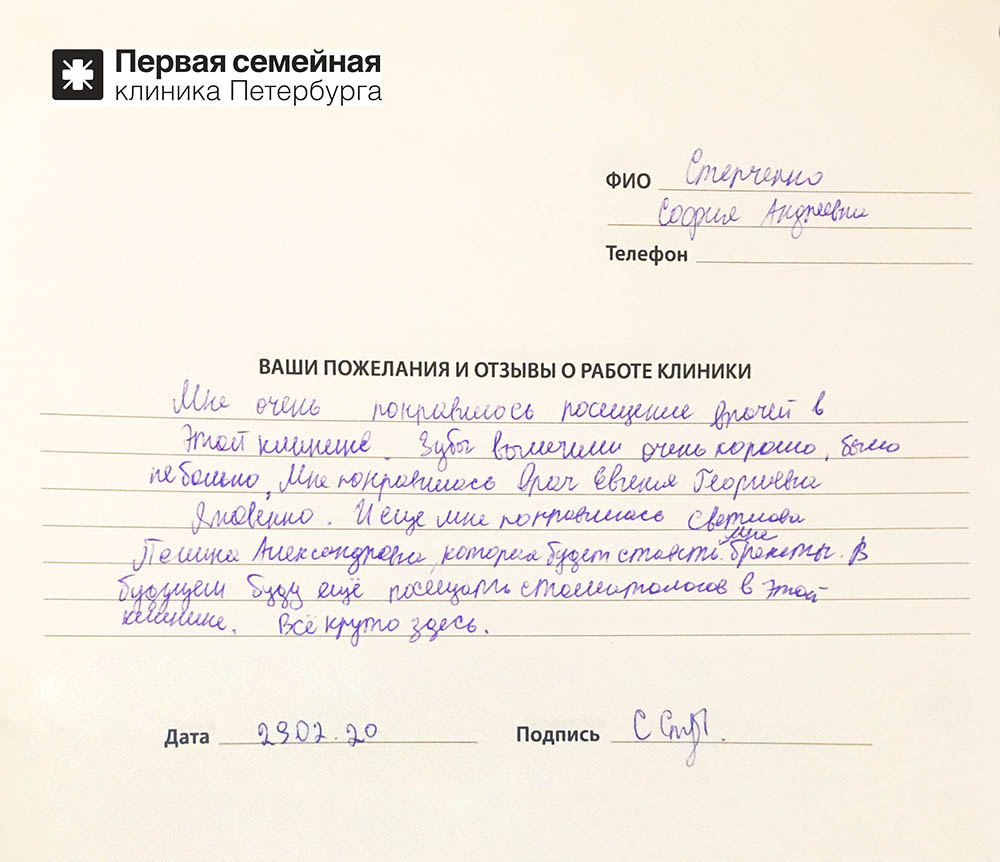 Первая семейная
клиника Петербурга
ФИО Стерченко
София Андреевна
Телефон
ВАШИ ПОЖЕЛАНИЯ И ОТЗЫВЫ О РАБОТЕ КЛИНИКИ
Мне очень понравилось посещение врачей в
этой клинике. Зубы вылечили очень хорошо, было
не больно, Мне понравилась врач Евгения Георгиевна
Яковенко. И еще мне понравилась Светлова
Полина Александровна, которая будет ставить мне брекеты. В
будущем буду ещё посещать стоматологов в этой
клинике. Всё круто здесь.
Дата 2902.20 Подпись